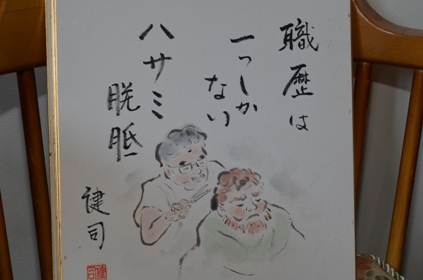 職歴は
一つしか
ない
ハサミ
胼胝
健司